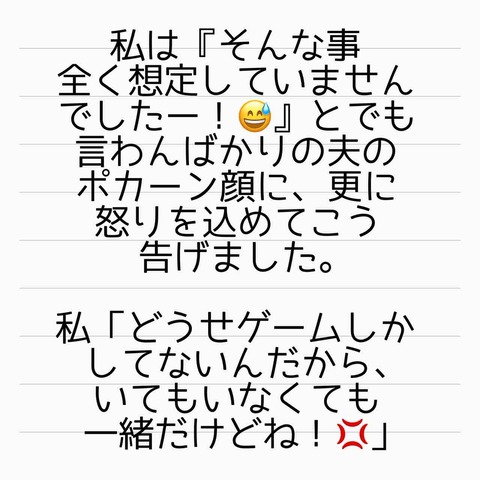 私は『そんな事
全く想定していません
でしたー！😅』とでも
言わんばかりの夫の
ポカーン顔に、更に
怒りを込めてこう
告げました。
私「どうせゲームしか
してないんだから、
いてもいなくても
一緒だけどね！💢」